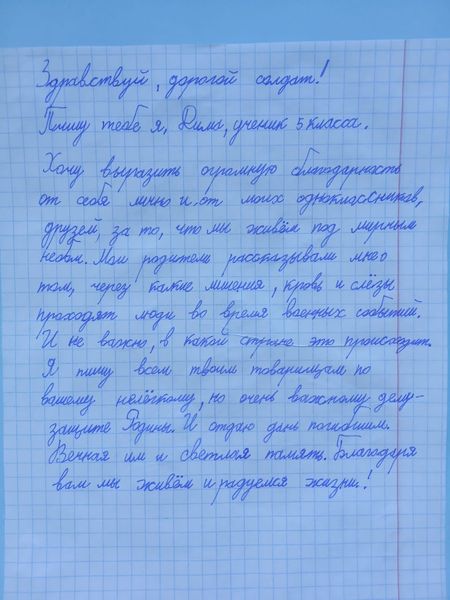 Здравствуй, дорогой солдат!
Пишу тебе я, Дима, ученик 5 класса.
Хочу выразить огромную благодарность
от себя лично и от моих одноклассников,
друзей, за то, что мы живём под мирным
небом. Мои родители рассказывали мне о
том, через какие лишения, кровь и слёзы
проходят люди во время военных событий.
И не важно, в какой стране это происходит.
Я пишу всем твоим товарищам по
вашему нелёгкому, но очень важному делу-
защите Родины. И отдаю дань погибшим.
Вечная им и светлая память. Благодаря
вам мы живём и радуемся жизни!